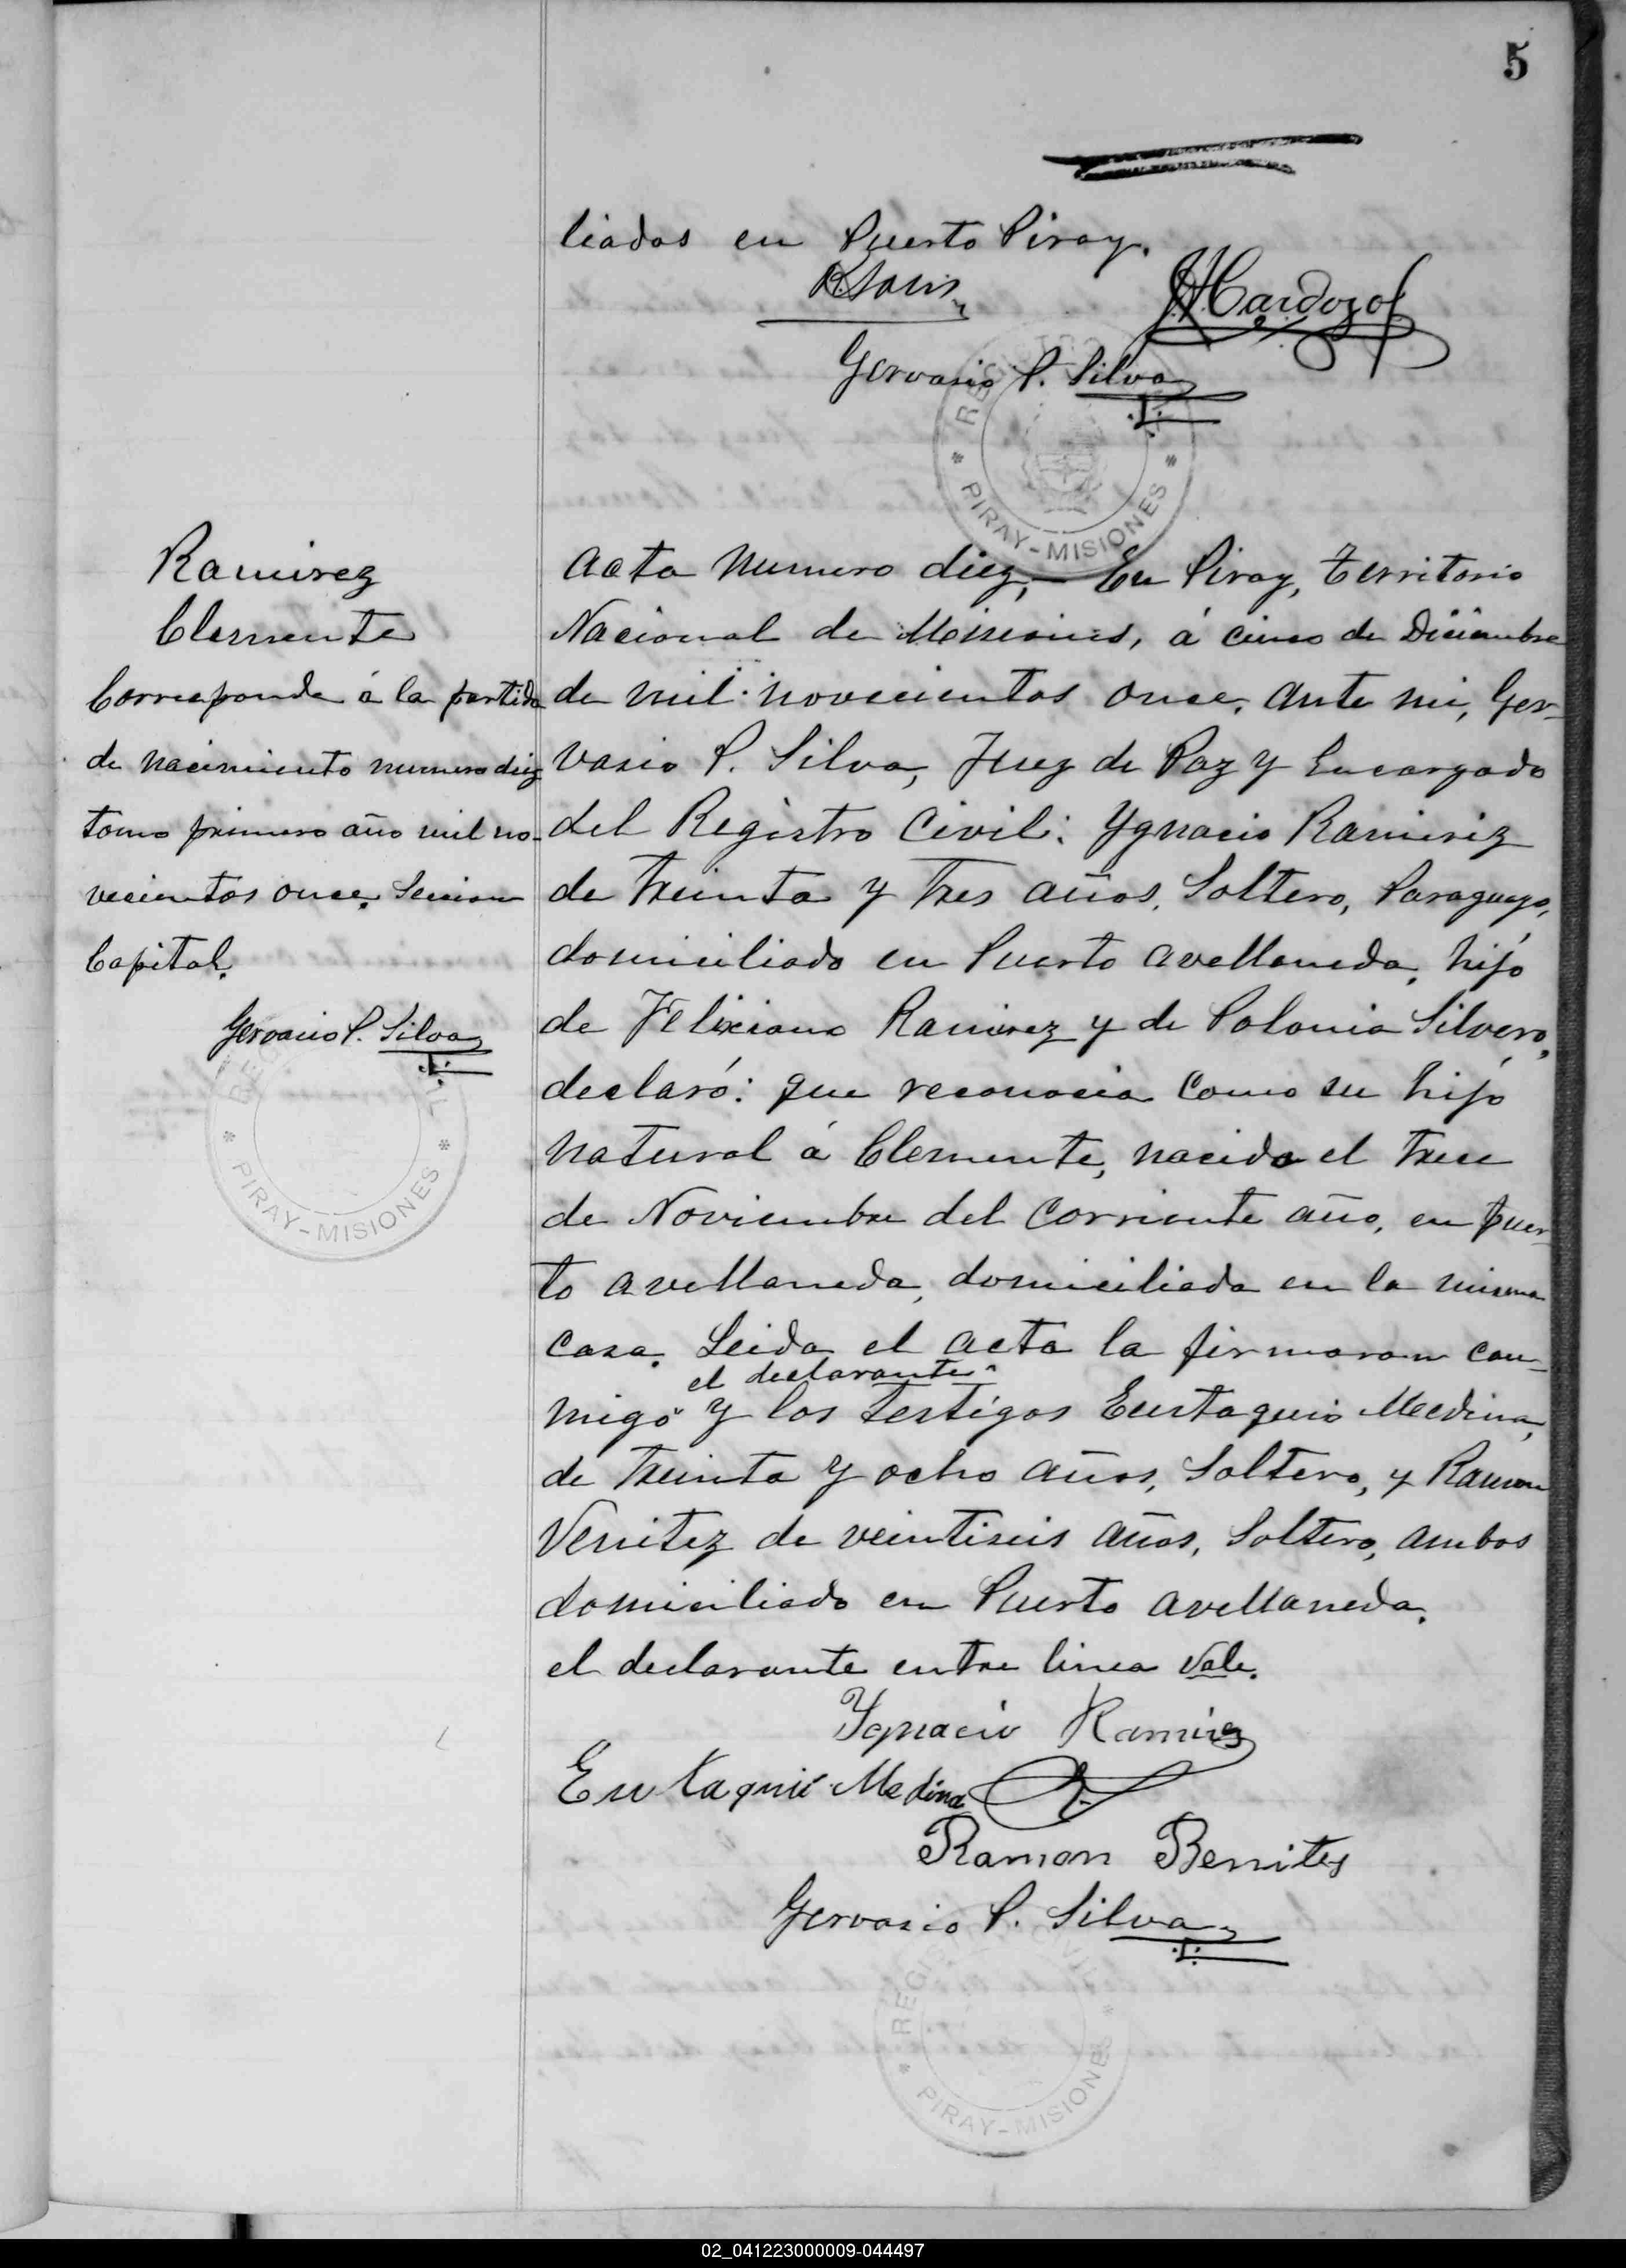 5
liados en Puerto Piray.
Cardozo
Gervasio P. Silva
REGISTRO
PIRAY-MISIONES
Ramirez
Clemente
Corresponde á la partida
de nacimiento numero diez
tomo primero año mil no-
vecientos once. Seccion
Capital.
Gervacio P. Silva
PIRAY-MISIONES
Acta Numero diez,- En Piray, Territorio
Nacional de Misiones, á cinco de Diciembre
de mil novecientos once, ante mi, Ger-
vasio P. Silva, Juez de Paz y Encargado
del Registro Civil: Ygnacio Ramiriz
de treinta y Tres años, Soltero, Paraguayo,
domiciliado en Puerto Avellaneda, hijo
de Feliciano Ramirez y de Polonia Silvero,
declaró: que reconocia como su hijo
natural á Clemente, nacido el trece
de Noviembre del corriente año, en puer-
to Avellaneda, domiciliada en la misma
casa. Leida el acta la firmaron con-
el declarante
migo y los testigos Eustaquio Medina,
de treinta y ocho años, Soltero, y Ramon
Venitez de veintiseis años, Soltero, ambos
domiciliado en Puerto Avellaneda.
el declarante entre linea Vale.
Ygnacio Ramirez
Eutaquii Medina
Ramon Bernites
Gervasio P. Silva
REGISTRO CIVIL
PIRAY-MISIONES
02_041223000009-044497